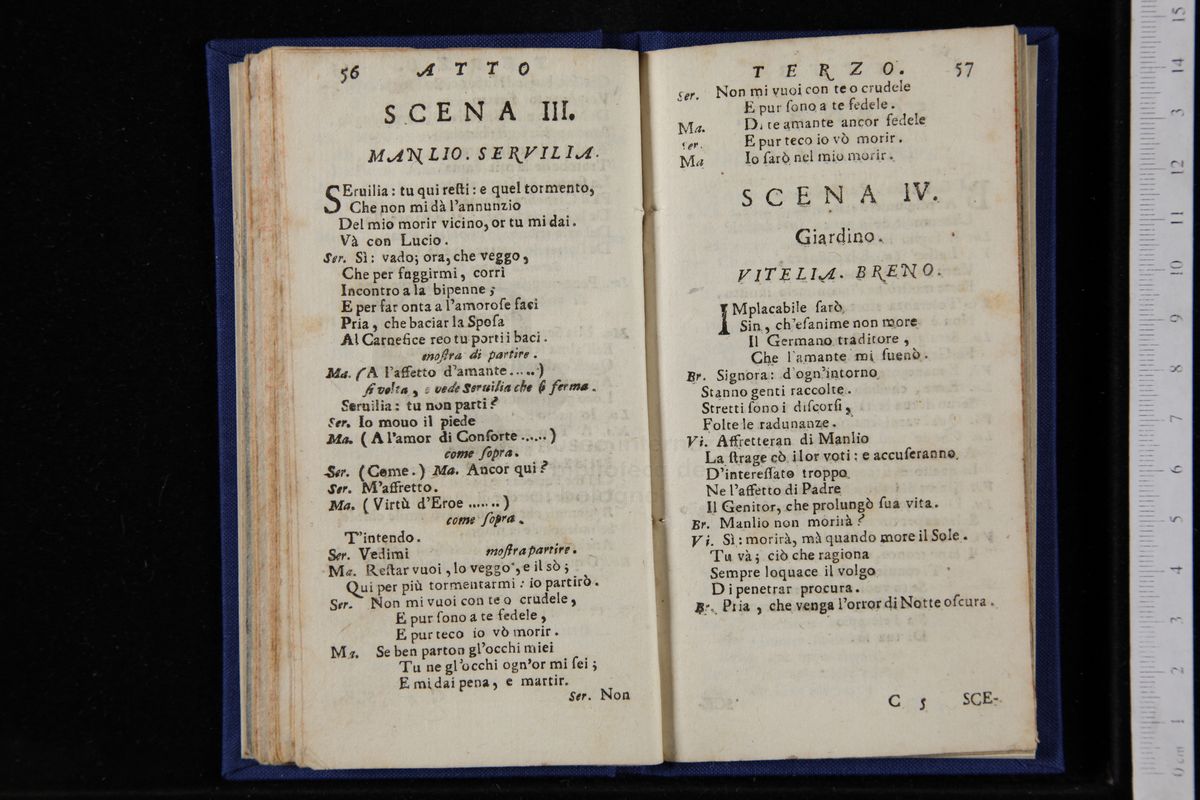 56 ATTO
SCENA III.
MANLIO. SERVILIA.
SEruilia: tu qui reſti: e quel tormento,
Che non mi dà l'annunzio
Del mio morir vicino, or tu mi dai.
Và con Lucio.
Ser. Sì: vado; ora, che veggo,
Che per fuggirmi, corri
Incontro a la bipenne;
E per far onta a l'amoroſe faci
Pria, che baciar la Spoſa
Al Carnefice reo tu porti i baci.
moſtra di partire.
Ma. (A l'affetto d'amante.....)
ſi volta, e vede Seruilia che ſi ferma.
Seruilia: tu non parti?
Ser. Io mouo il piede
Ma. (A l'amor di Conſorte......)
come ſopra.
Ser. (Come.) Ma. Ancor qui?
Ser. M'affretto.
Ma. (Virtù d'Eroe.......)
come ſopra.
T'intendo.
Ser. Vedimi moſtra partire.
Ma. Reſtar vuoi, lo veggo, e il sò;
Qui per più tormentarmi: io partirò.
Ser. Non mi vuoi con te o crudele,
E pur ſono a te fedele,
E pur teco io vò morir.
Ma. Se ben parton gl'occhi miei
Tu ne gl'occhi ogn'or mi ſei;
E mi dai pena, e martir.
Ser. Non
TERZO. 57
Ser. Non mi vuoi con te o crudele
E pur ſono a te fedele.
Ma. Di te amante ancor fedele
Ser. E pur teco io vò morir.
Ma Io ſarò nel mio morir.
SCENA IV.
Giardino.
VITELIA. BRENO.
IMplacabile ſarò
Sin, ch'eſanime non more
Il Germano traditore,
Che l'amante mi ſuenò.
Br. Signora: d'ogn'intorno
Stanno genti raccolte.
Stretti ſono i diſcorſi,
Folte le radunanze.
Vi. Affretteran di Manlio
La ſtrage cò i lor voti: e accuſeranno
D'intereſſato troppo
Ne l'affetto di Padre
Il Genitor, che prolungò ſua vita.
Br. Manlio non morirà?
Vi. Sì: morirà, mà quando more il Sole.
Tu và; ciò che ragiona
Sempre loquace il volgo
Di penetrar procura.
Br. Pria, che venga l'orror di Notte oſcura.
C 5 SCE-